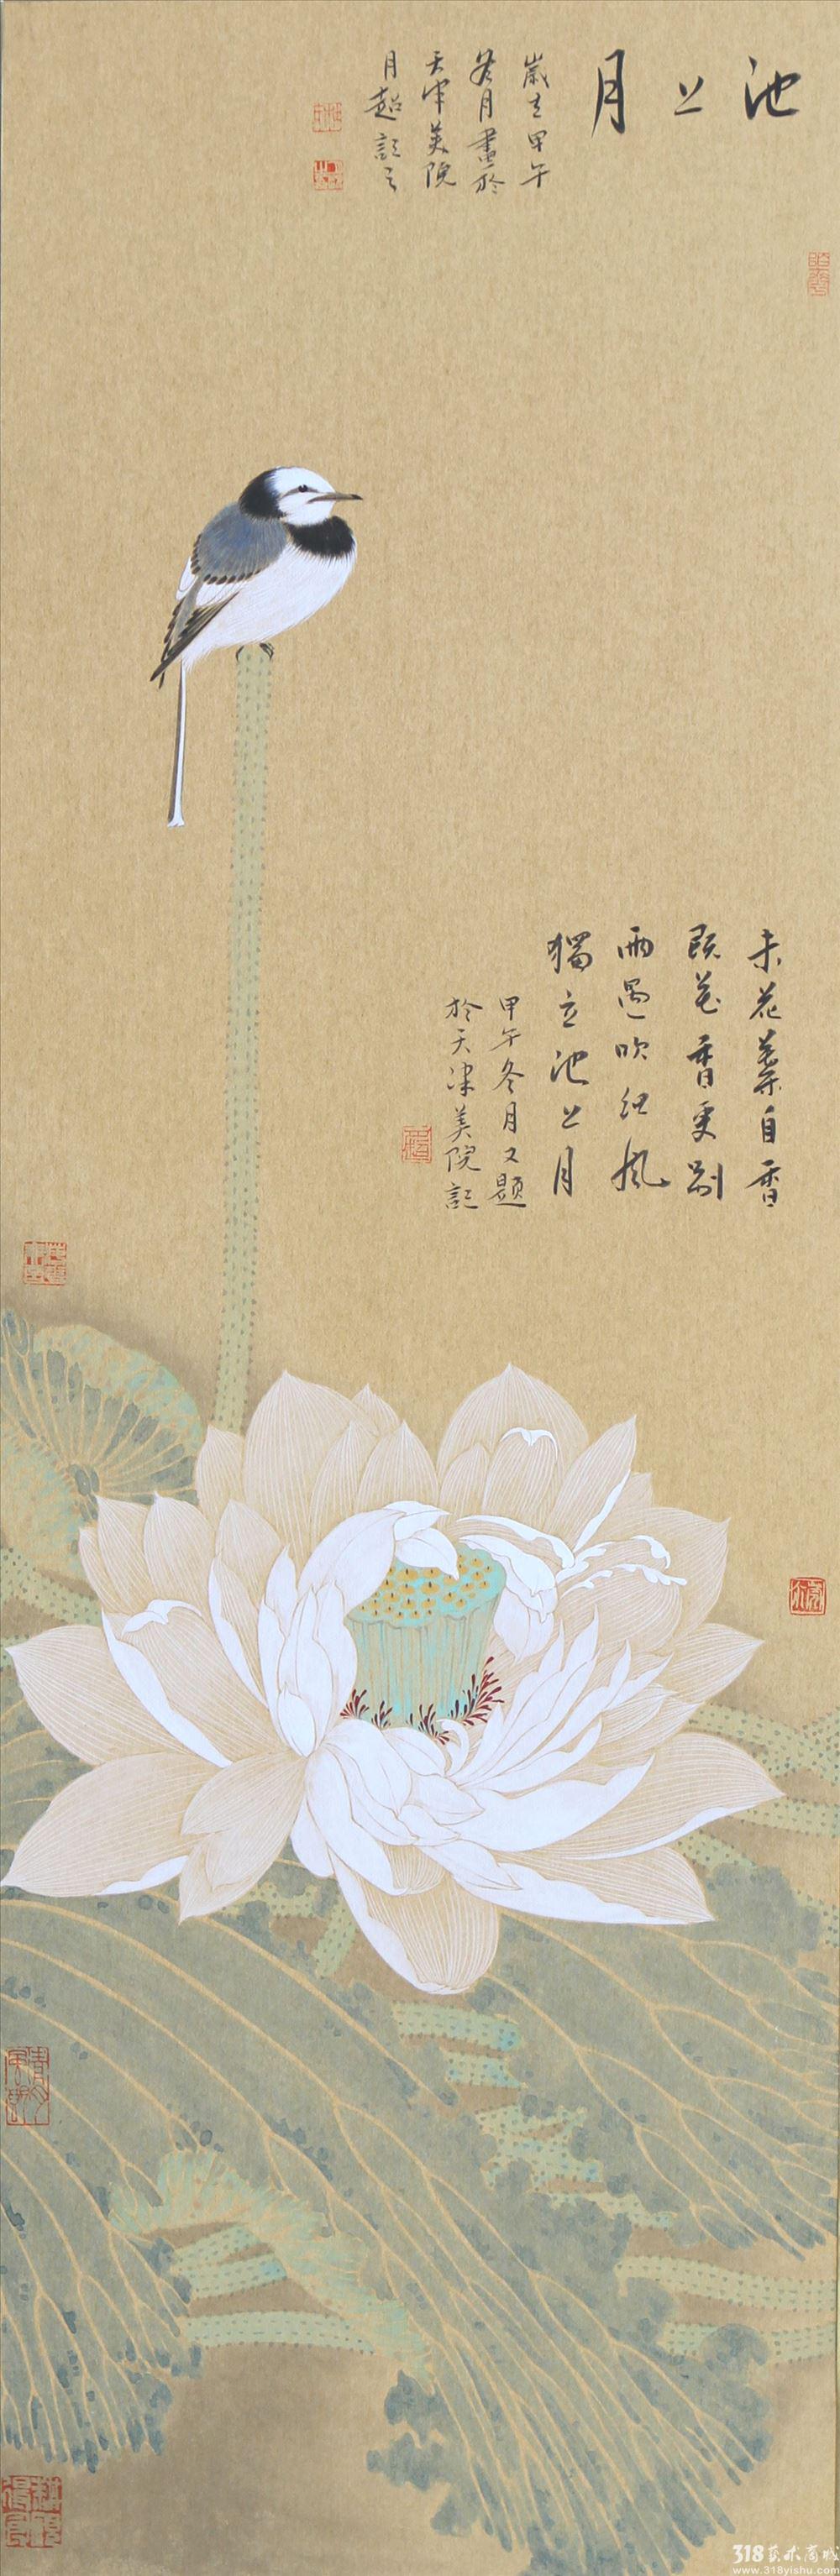 池上月
歲在甲午
冬月畫於
天津美院
月超記之
未花葉自香
既花香更別
雨過吹細風
獨立池上月
甲午冬月又題
於天津美院記
318艺术商城
www.318yishu.com